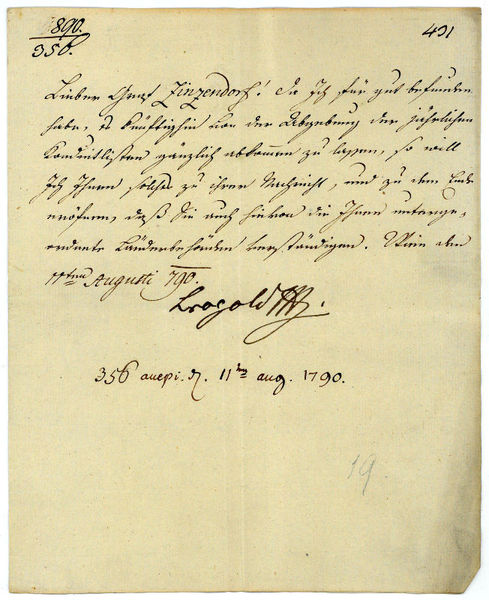 890.
356.
491
Lieber Graf Zinzendorf! Da Ich für gut befunden
habe, es künftighin von der Abgebung der jährlichen
Konduitlisten gänzlich abkommen zu lassen, so will
Ich Ihnen solches zu ihrer Nachricht, und zu dem Ende
eröfnen, daß Sie auch hievon die Ihnen unterge-
ordnete Länderbehörden verständigen. Wien den
11ten Augusti 790.
Leopold
356 accepi. d. 11ten aug. 1790.
19